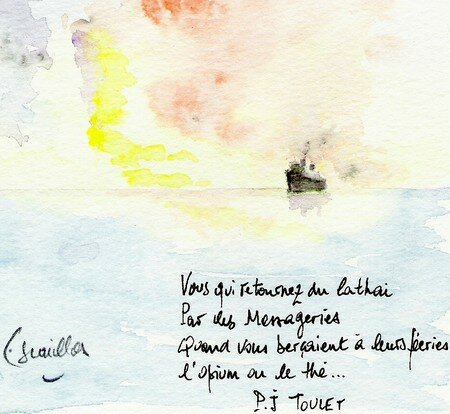 Vous qui retournez du Cathai
Par les Messageries
Quand vous berçaient à leurs féeries
l'opium ou le thé...
P.J TOULET